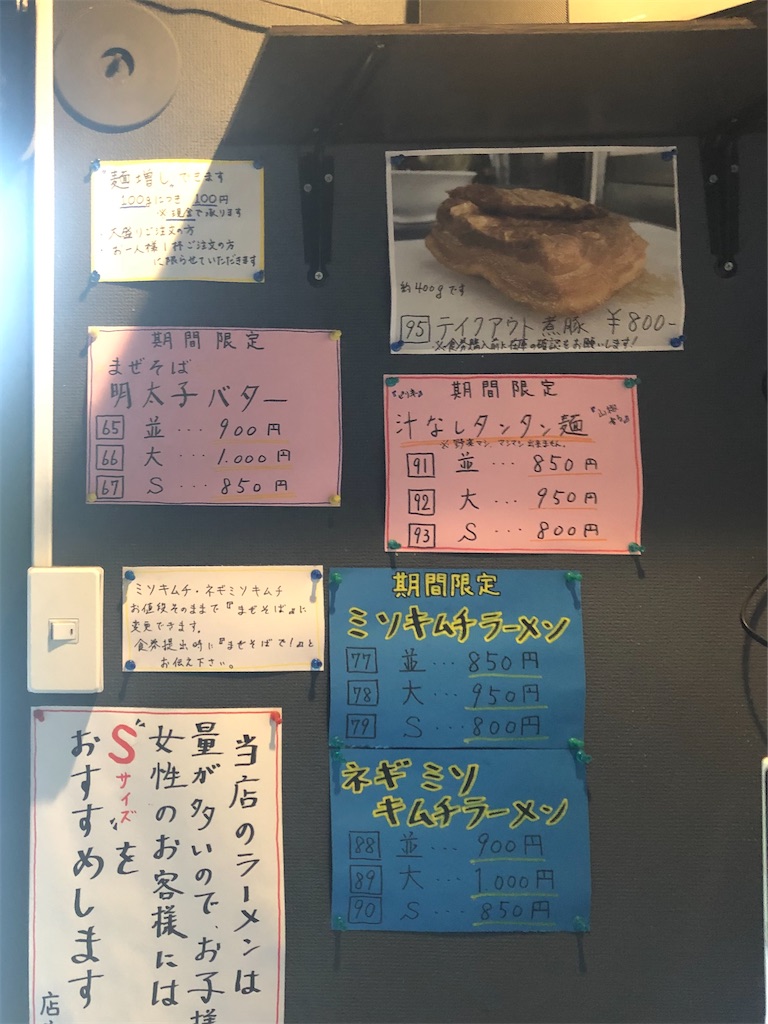 『麺増し』できます
100gにつき 100円
※現金で承ります
・大盛りご注文の方
・お一人様1杯ご注文の方
に限らせていただきます
約400gです
95 テイクアウト煮豚 ¥800-
※食券購入前に在庫の確認をお願いします!
期間限定
まぜそば
明太子バター
65 並…900円
66 大…1.000円
67 S…850円
期間限定
汁なしタンタン麺
※野菜マシ、マシマシ出来ません。
91 並…850円
92 大…950円
93 S…800円
ミソキムチ・ネギミソキムチ
お値段そのままで『まぜそば』に
変更できます。
食券提出時に『まぜそばで!』と
お伝え下さい。
期間限定
ミソキムチラーメン
77 並…850円
78 大…950円
79 S…800円
ネギミソ
キムチラーメン
88 並…900円
89 大…1000円
90 S…850円
当店のラーメンは
量が多いので、お子様
女性のお客様には
"Sサイズ"を
おすすめします
店